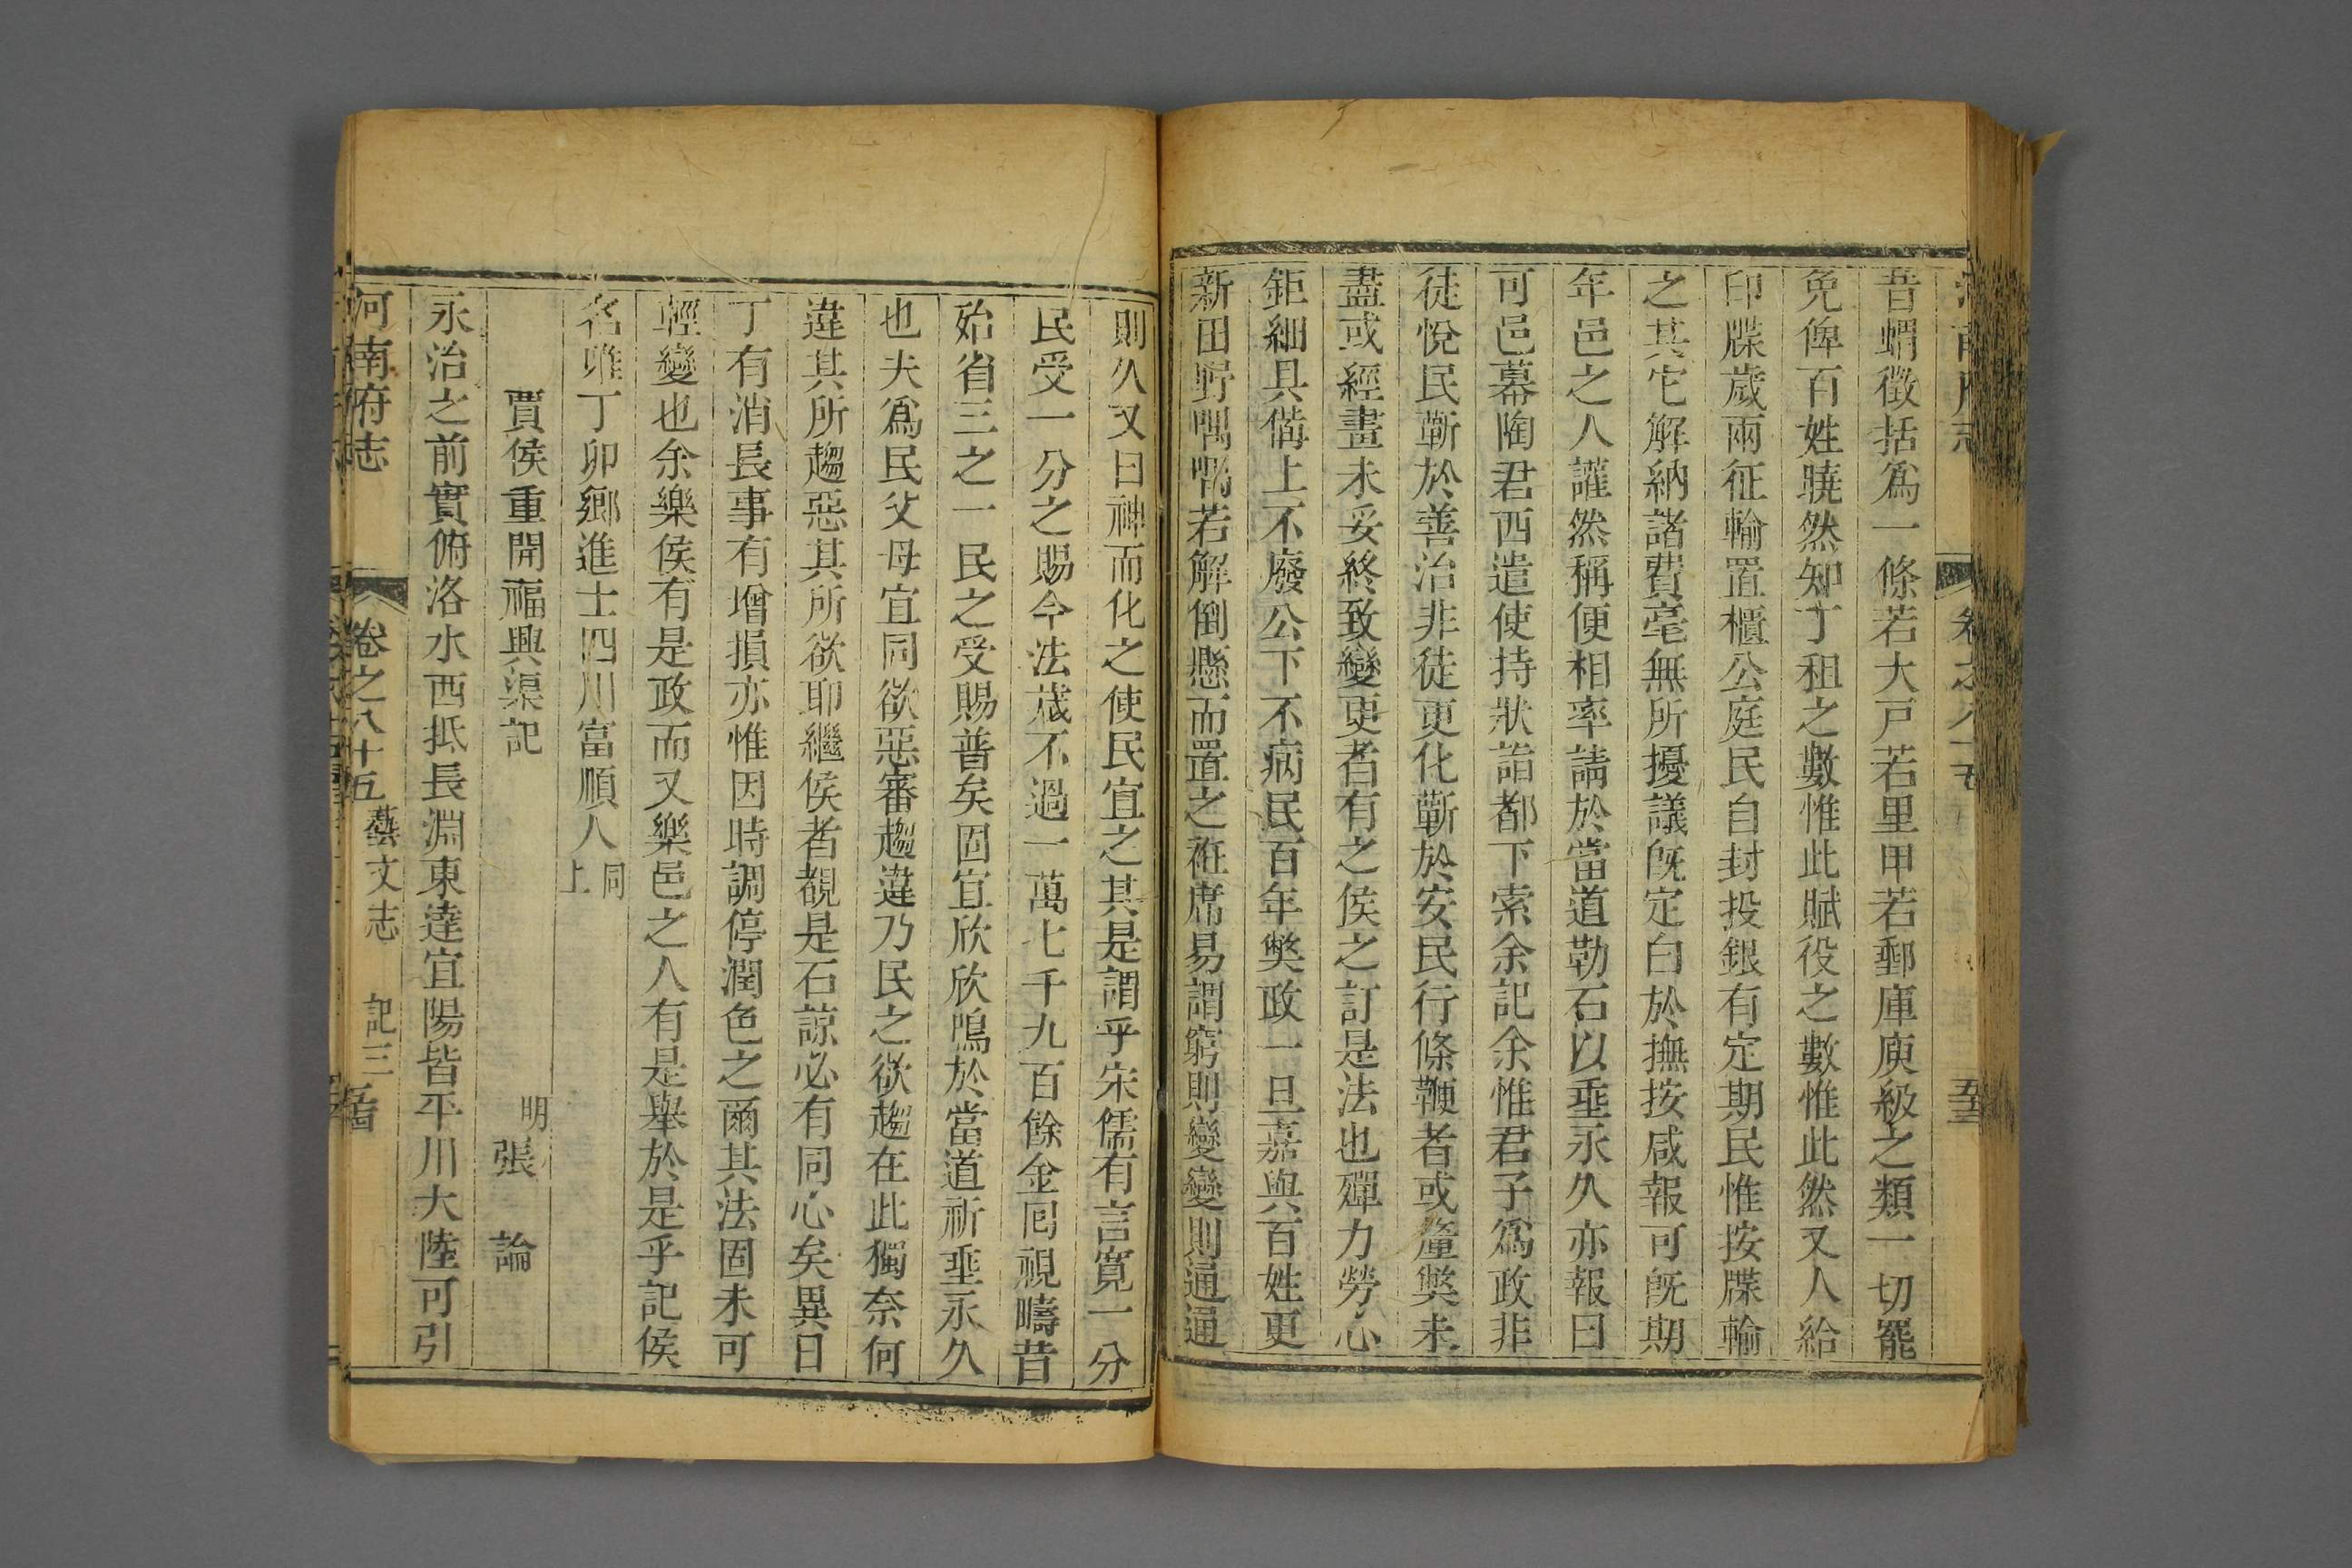 音蝟徵括爲一條若大戸若里甲若郵庫庾級之類一切罷
免俾百姓曉然知丁租之數惟此賦役之數惟此然又人給
印牒歲兩征輸置櫃公庭民自封投銀有定期民惟按牒輸
之其它解納諸費毫無所擾議旣定白於撫按咸報可旣期
年邑之人讙然稱便相率請於當道勒石以垂永久亦報曰
可邑幕陶君西遣使持狀詣都下索余記余惟君子爲政非
徒悅民蘄於善治非徒更化蘄於安民行條鞭者或釐獘未
盡或經畫未妥終致變更者有之侯之訂是法也殫力勞心
鉅細具備上不廢公下不病民百年獘政一旦嘉與百姓更
新田野喁喁若解倒懸而置之袵席易謂窮則變變則通通
則久又曰神而化之使民宜之其是謂乎宋儒有言寬一分
民受一分之賜今法歲不過一萬七千九百餘金囘視疇昔
殆省三之一民之受賜普矣固宜欣欣鳴於當道祈垂永久
也夫爲民父母宜同欲惡審趨違乃民之欲趨在此獨奈何
違其所趨惡其所欲耶繼侯者覩是石諒必有同心矣異日
丁有消長事有增損亦惟因時調停潤色之爾其法固未可
輕變也余樂侯有是政而又樂邑之人有是舉於是乎記侯
名唯丁卯鄉進士四川富順人同上
賈侯重開福興渠記 明張 論
永治之前實俯洛水西抵長淵東達宜陽皆平川大陸可引
河南府志 卷之八十五 藝文志 記三